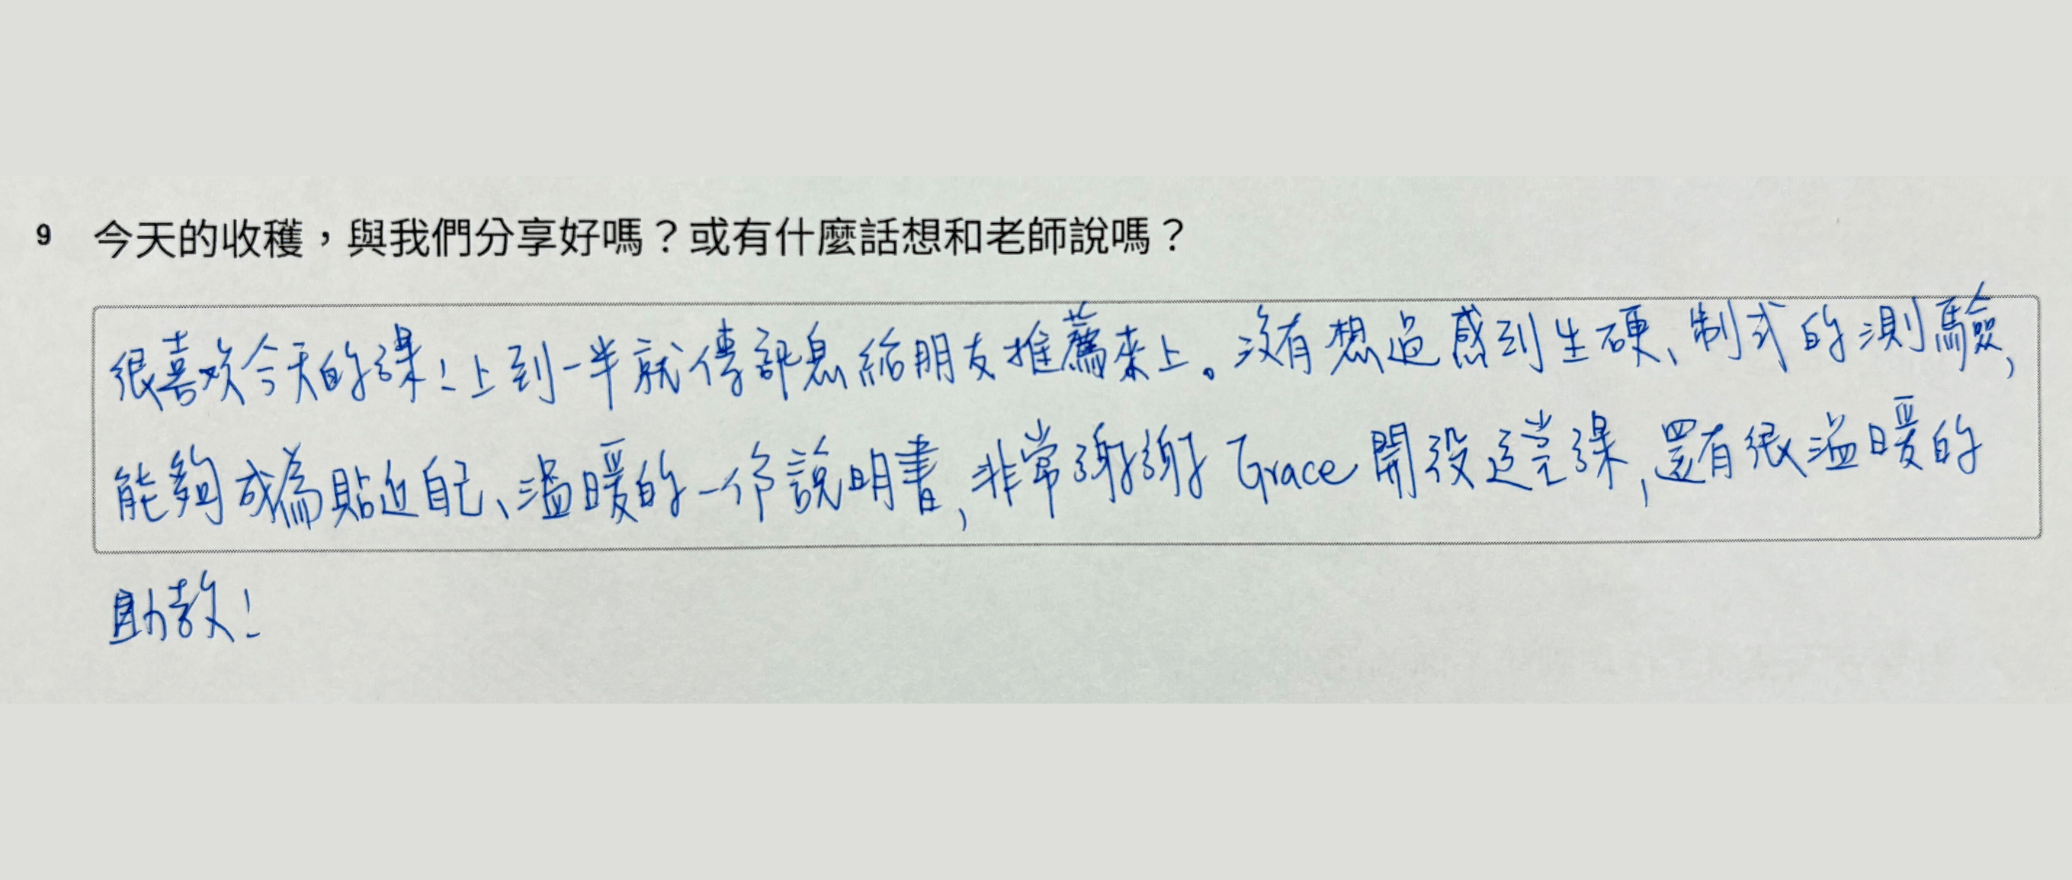 9 今天的收穫，與我們分享好嗎？或有什麼話想和老師說嗎？
很喜歡今天的課！上到一半就傳訊息給朋友推薦來上。沒有想過感到生硬、制式的測驗,
能夠成為貼近自己、溫暖的一份說明書,非常謝謝 Grace 開設這堂課,還有很溫暖的
助教！